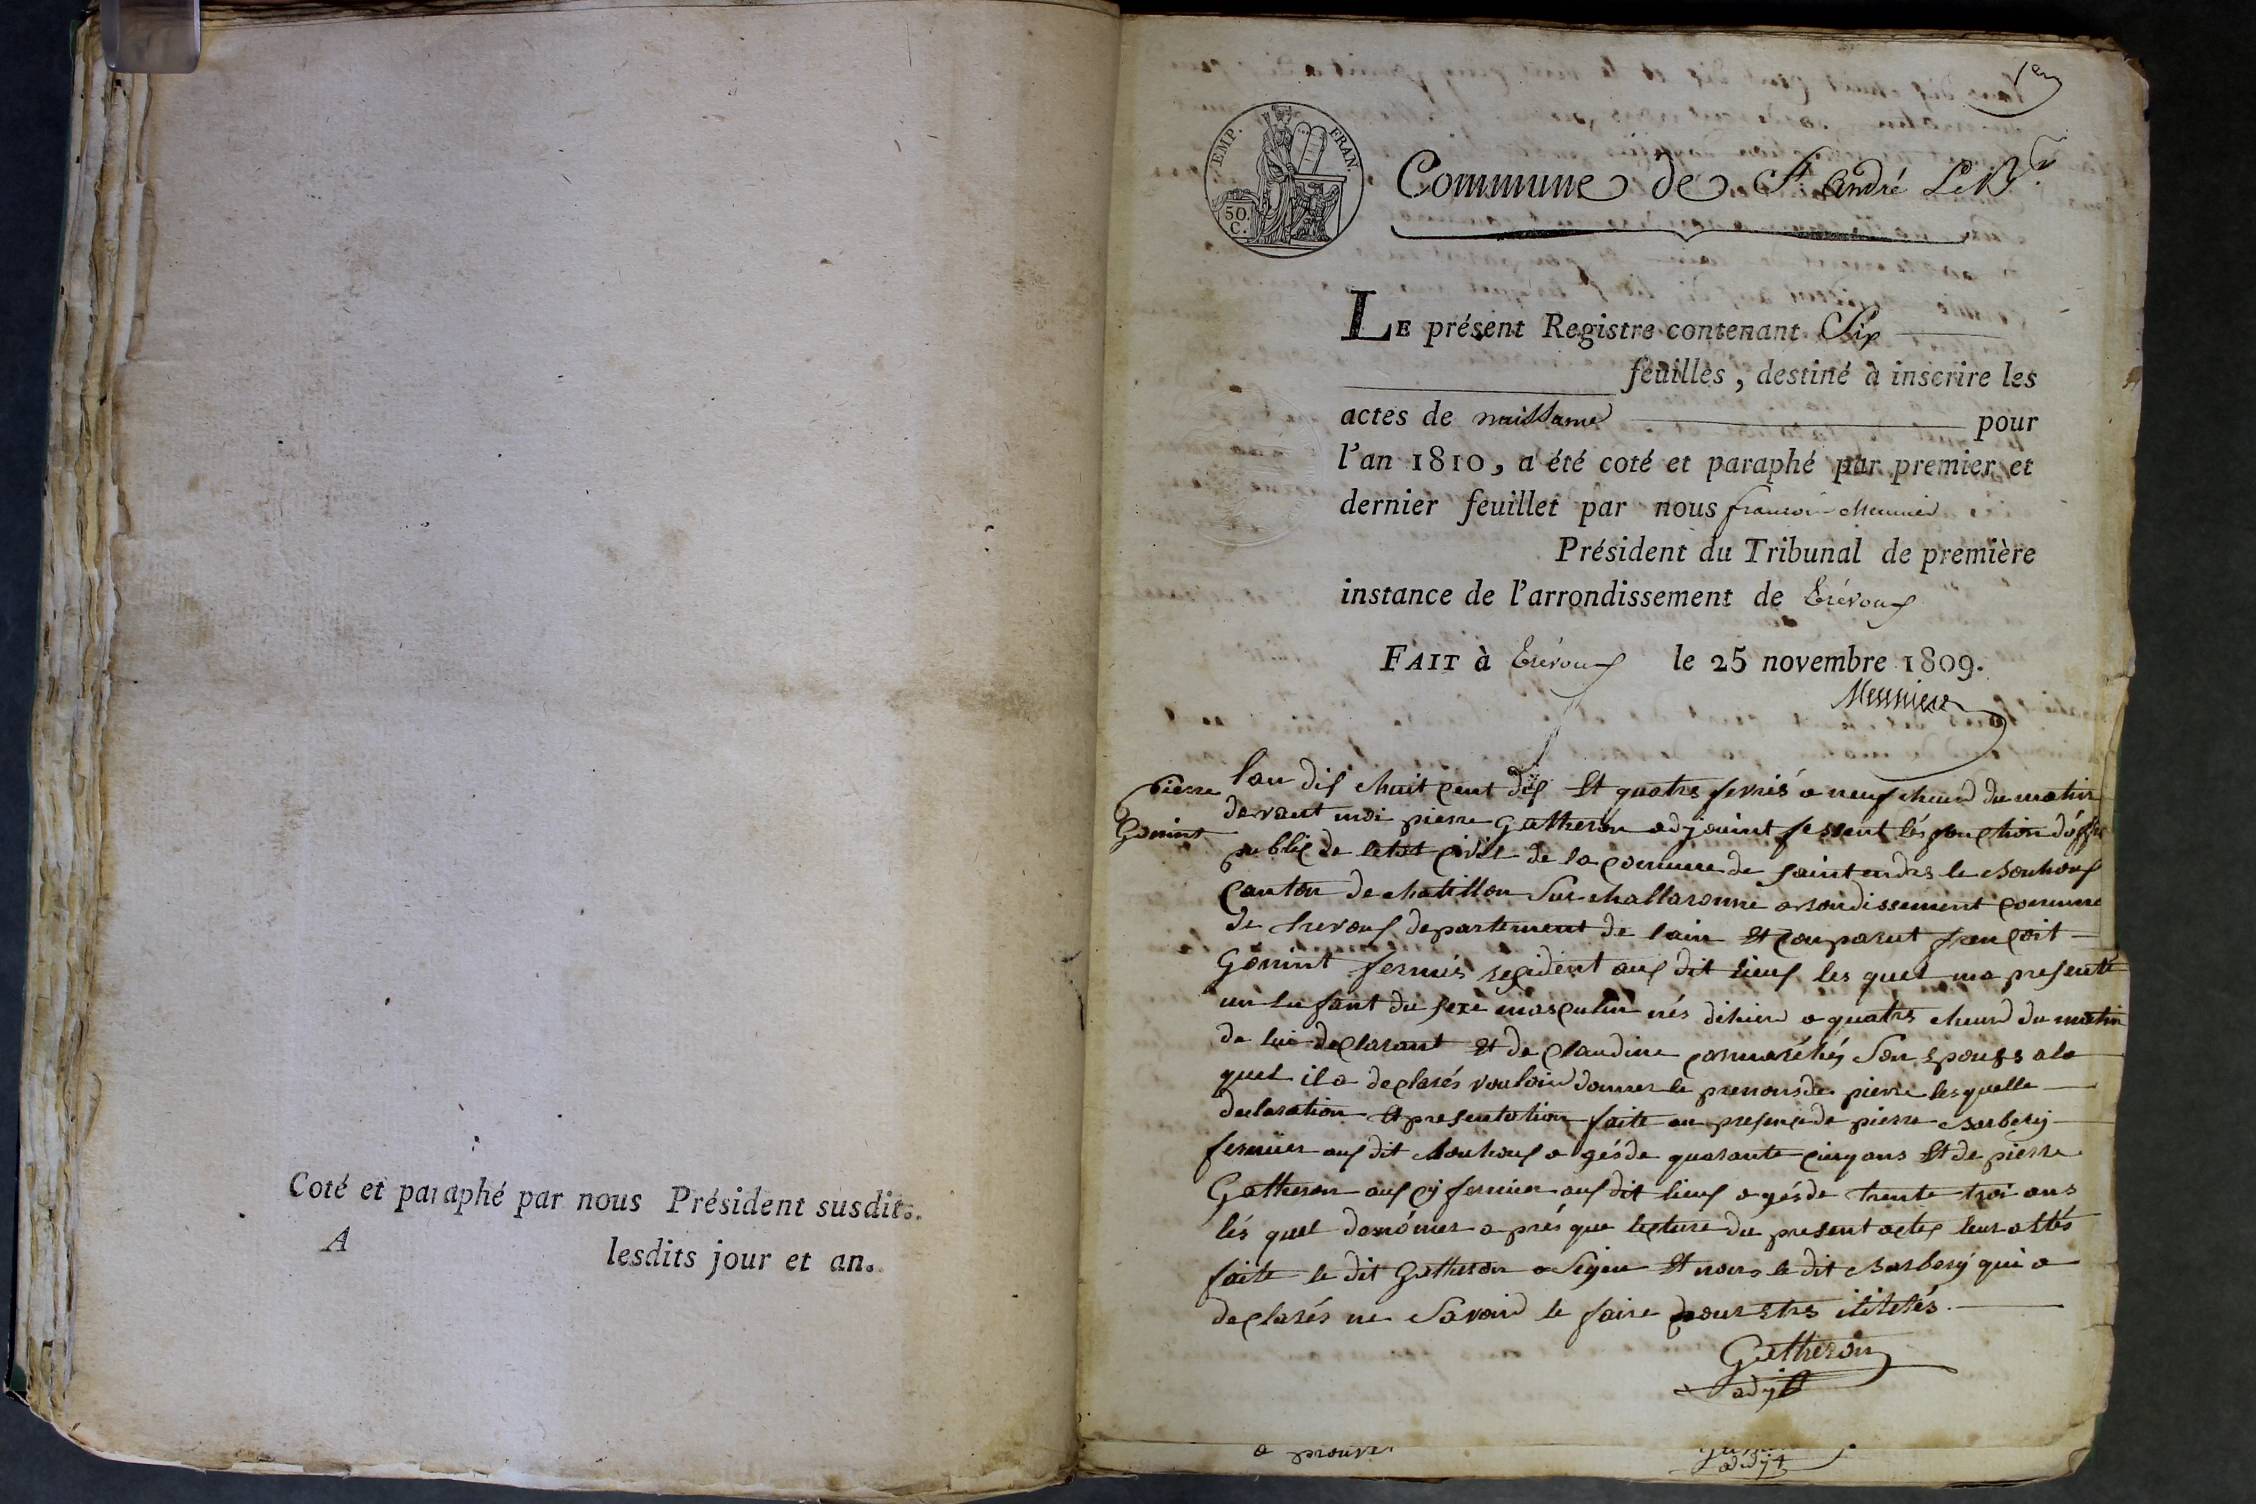 Coté et paraphé par nous Président susdit.
A lesdits jour et an.
1er
EMP. FRAN.
50.
C.
Commune de St André Le B.x
LE présent Registre contenant Six
feuilles, destiné à inscrire les
actes de naissance pour
l'an 1810, a été coté et paraphé par premier et
dernier feuillet par nous françois Meunier
Président du Tribunal de première
instance de l'arrondissement de Trévoux
FAIT à Trévoux le 25 novembre 1809.
Meunier
pierre
Gonint
l'an dix chuit cent dix Et quatre fevrié a neuf cheurd du matin
devant moi pierre Gutheron adjouint fessent lés fonction d'off
public de letat civil de la comune de saint andre le Bouhoux
Canton de chatillon Sur challaronne arondissement comune
de trevoux departement de lain Et Comparut françoit
Gonint fermié resident aux dit lieux les quel ma presenté
un enfant du sexe masculin nés dihierd a quatre cheurd du matin
de lui declarant Et de claudine Son epouse ala
quel il a declarés vouloird donner le prenom de pierre lesquelle
declaration Et presentation faite an presence de pierre Barbery
fermier aux dit Bouhoux a gés de quarante cinq ans Et de pierre
Gutheron aux cy fermier aux dit lieux a gés de trente troi ans
lés quel a prés que lecture du present acte leur a étés
faite le dit Gutheron a Signe Et nons le dit Barbery qui a
declarés ne Savoird le faire
Gutheron
adjt
a prouvé
adjt